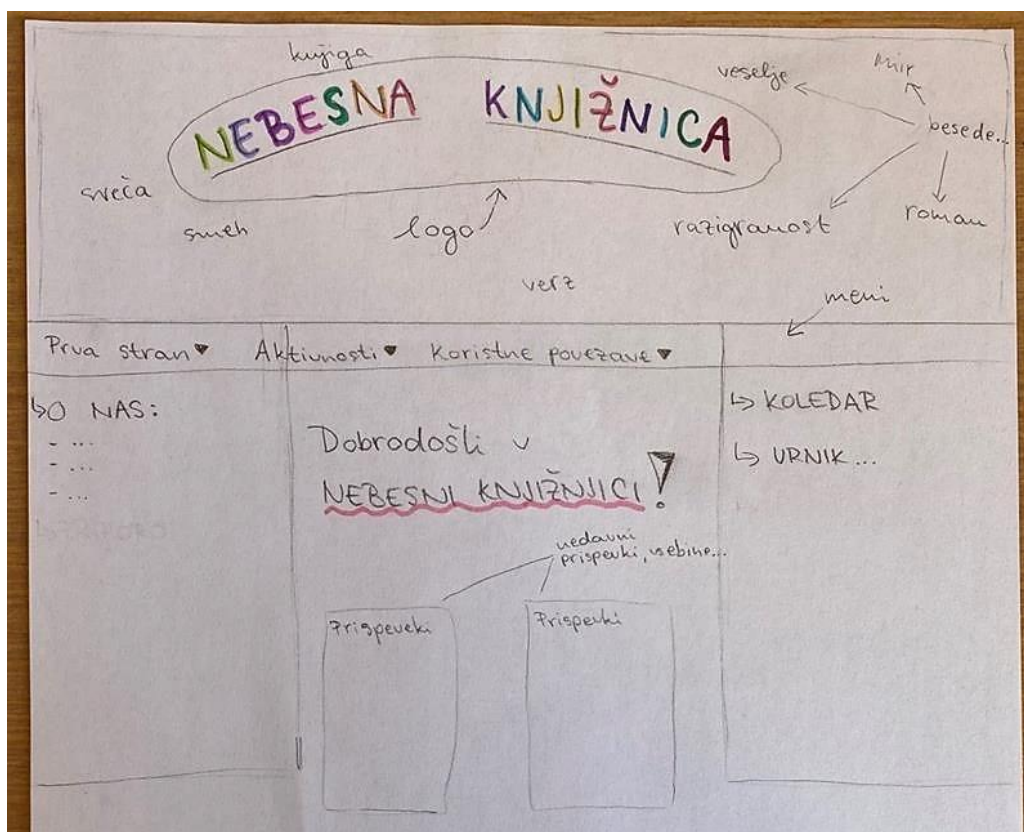 knjiga
NEBESNA KNJIŽNICA
veselje
mir
besede...
sveča
smeh
logo
razigranost
roman
verz
meni
Prva stran Aktivnosti Koristne povezave
O NAS:
- ...
- ...
- ...
Dobrodošli v
NEBESNI KNJIŽNJICI!
KOLEDAR
URNIK...
nedavni
prispevki, vsebine...
Prispeveki
Prispevki